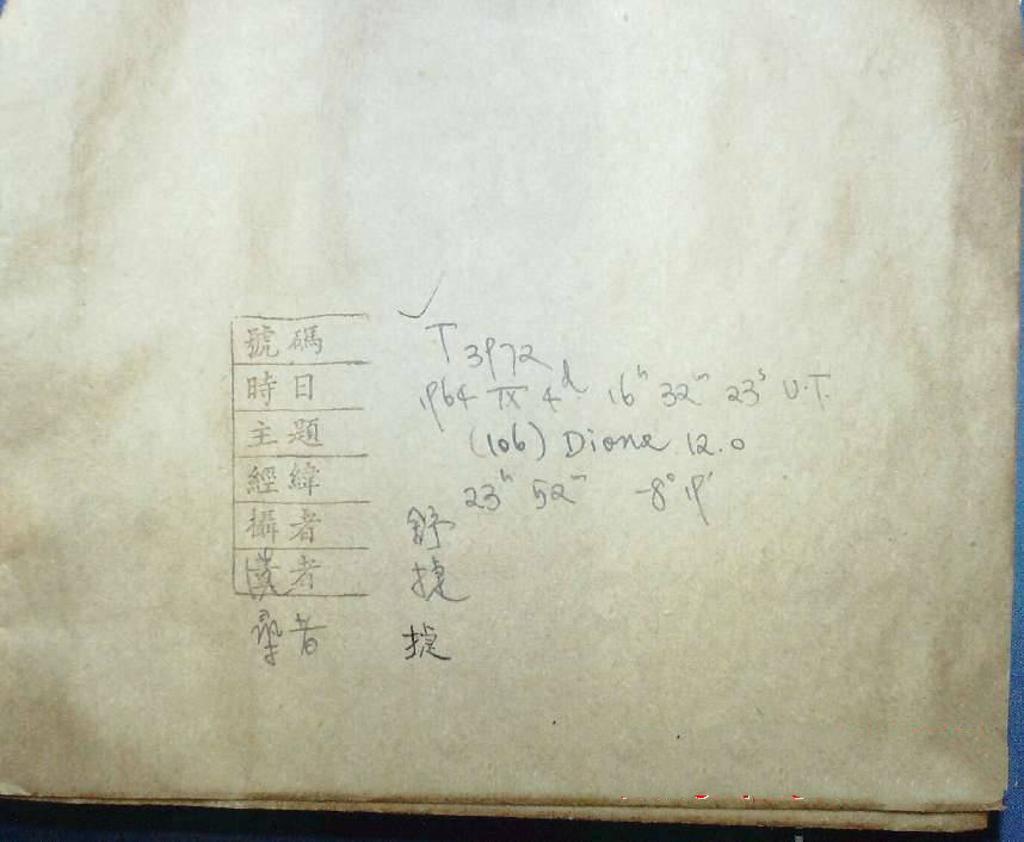 號碼 T 3972
時日 1964 IX 4d 16h 32m 23s U.T.
主題 (106) Dione 12.0
經緯 23h 52m -8° 19'
攝者 舒
者 捷
尋者 捷